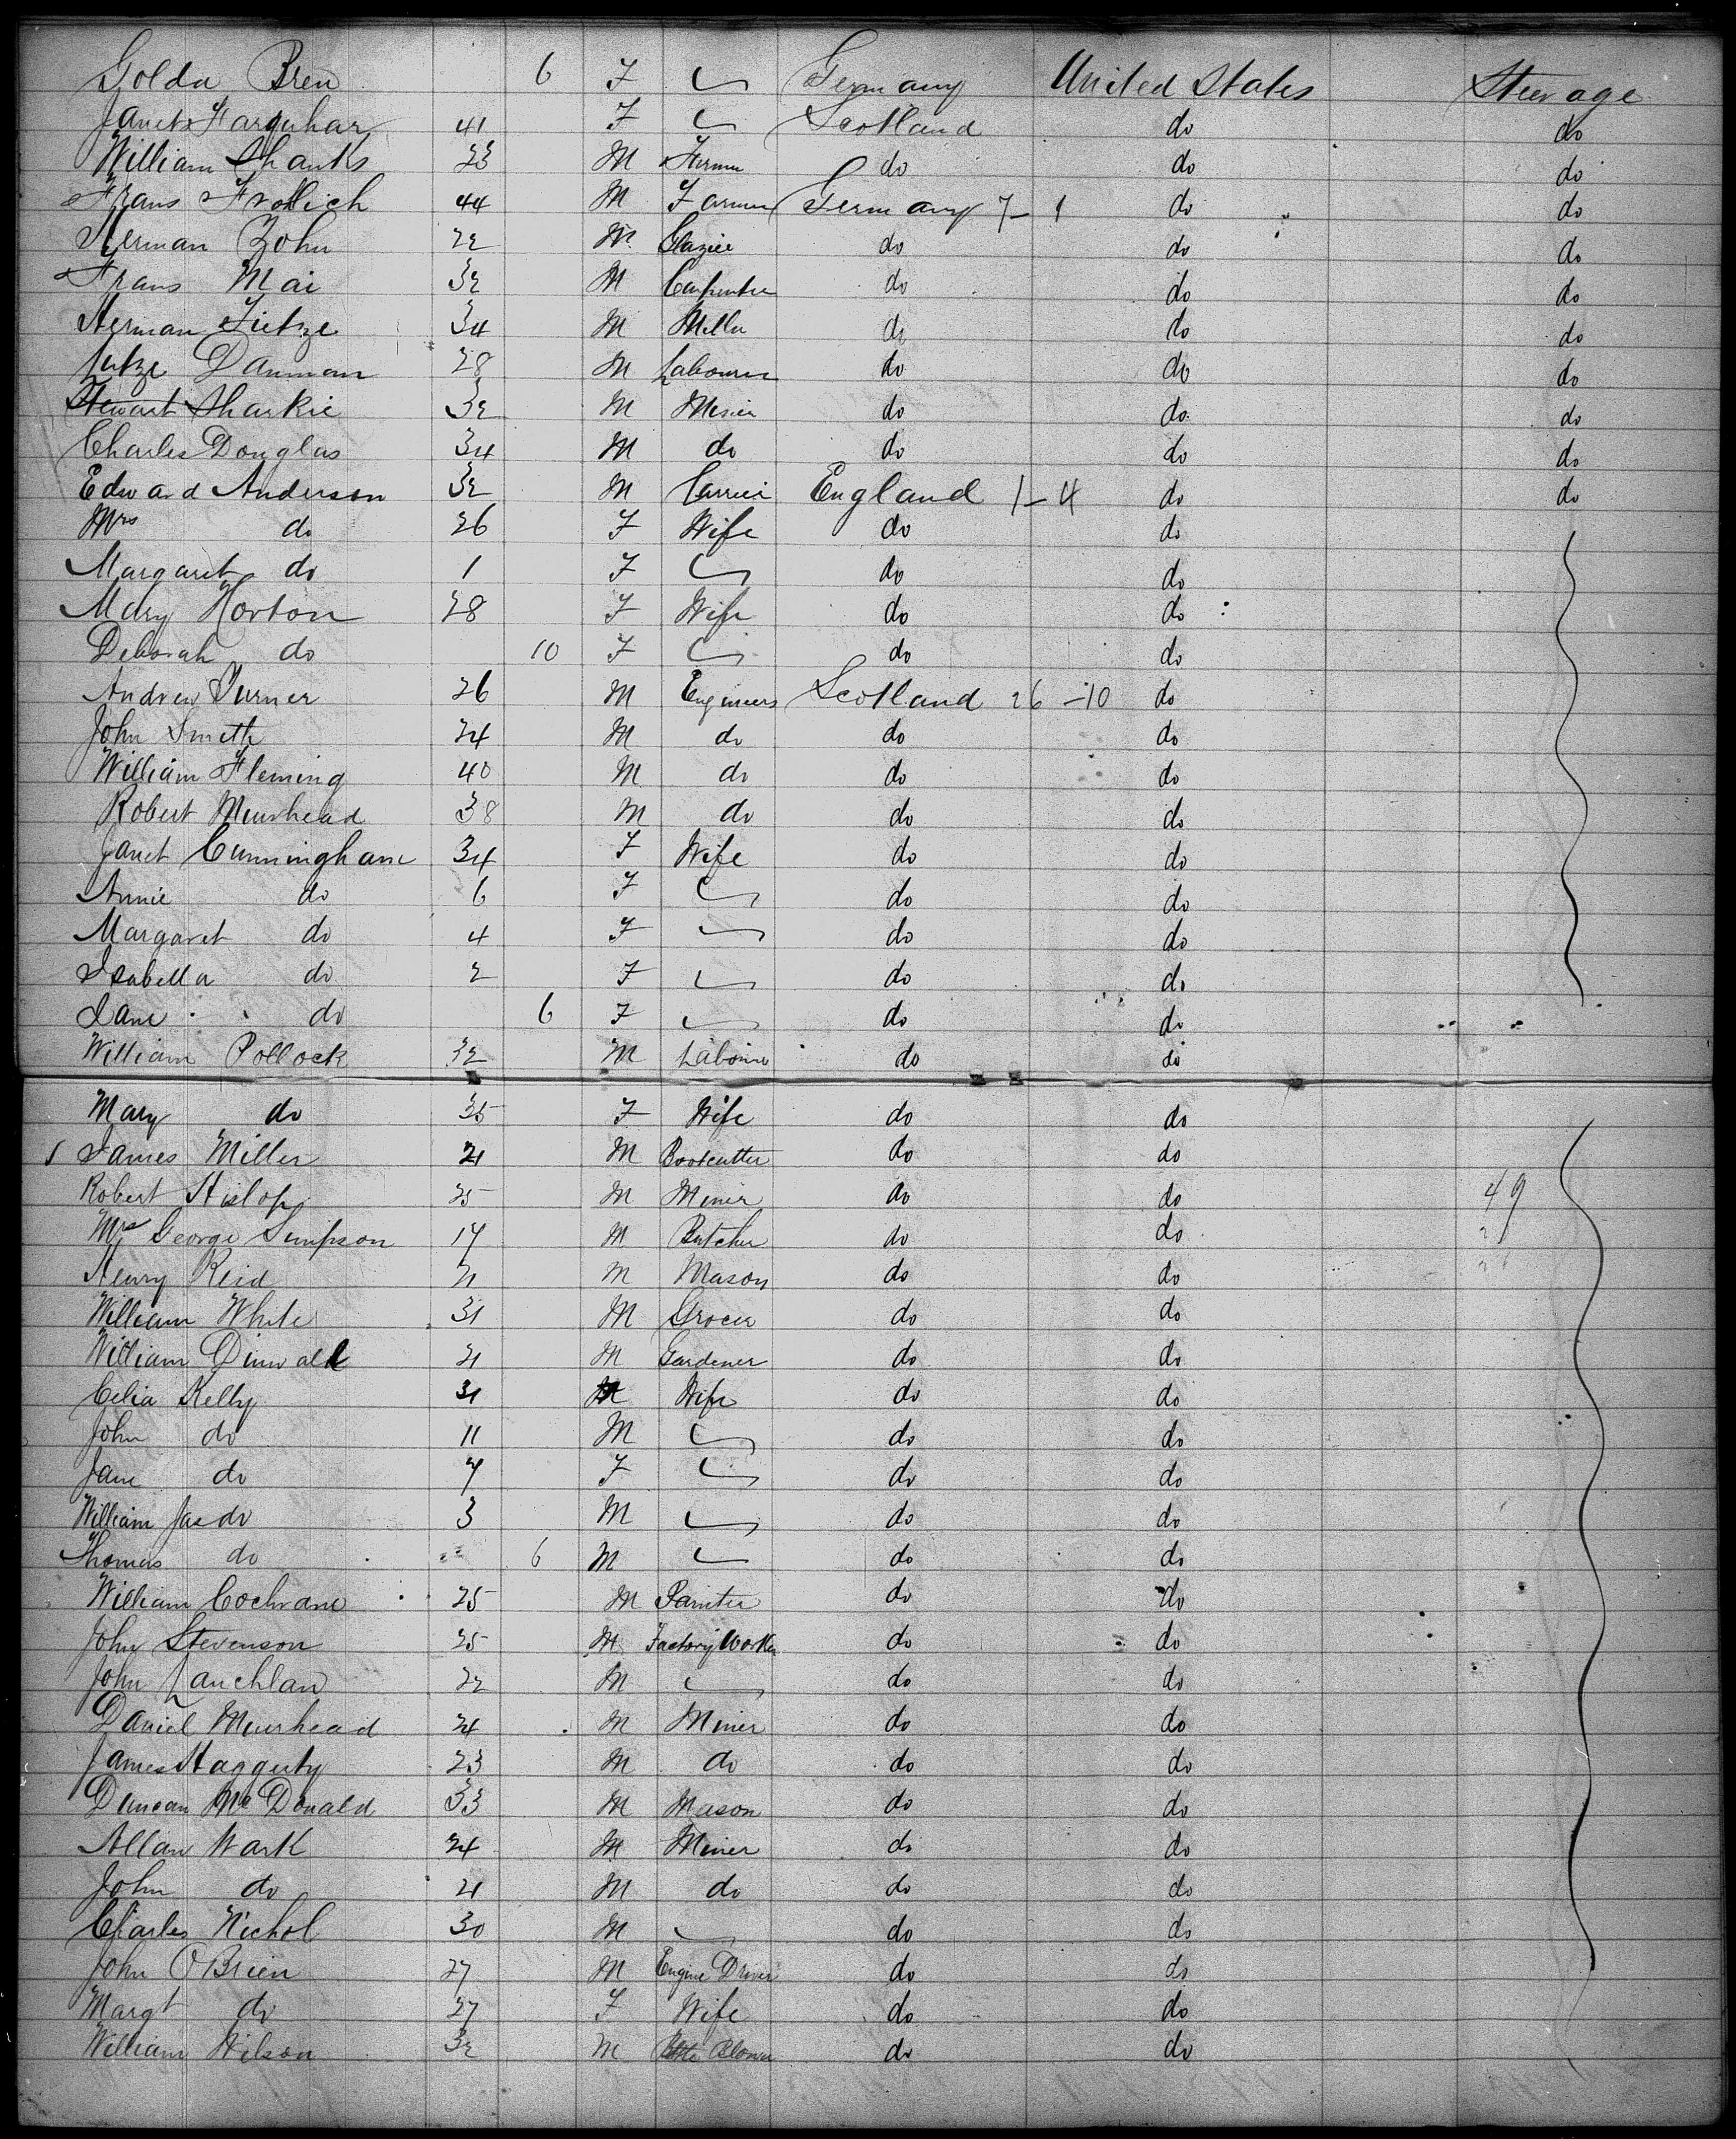 Golda Bren 6 F Germany United States Steerage
Janet Farquhar 41 F Scotland do do
William Shanks 23 M Farmer do do do
Frans Frolich 44 M Farmer Germany 7-1 do do
Herman Zohn 22 M Glazier do do do
Frans Mai 32 M Carpenter do do do
Herman Tietze 34 M Miller do do do
Lutze Dauman 28 M Labourer do do do
Stewart Sharkie 32 M Miner do do do
Charles Douglas 34 M do do do do
Edward Anderson 32 M Carrier England 1-4 do do
Mrs do 26 F Wife do do
Margaret do 1 F do do
Mary Horton 28 F Wife do do
Deborah do 10 F do do
Andrew Turner 26 M Engineers Scotland 26-10 do
John Smith 24 M do do do
William Fleming 40 M do do do
Robert Muirhead 38 M do do do
Janet Cunningham 34 F Wife do do
Annie do 6 F do do
Margaret do 4 F do do
Isabella do 2 F do do
Jane do 6 F do do
William Pollock 32 M Labourer do do
Mary do 35 F Wife do do
James Miller 21 M Bootcutter do do
Robert Hislop 25 M Miner do do 49
Mrs George Simpson 17 M Butcher do do 21
Henry Reid 21 M Mason do do
William White 31 M Grocer do do
William Dinwall 21 M Gardener do do
Celia Kelly 31 Wife do do
John do 11 M do do
Jane do 7 F do do
William Jas do 3 M do do
Thomas do 6 M do do
William Cochrane 25 M Painter do do
John Stevenson 25 M Factory Worker do do
John Lauchlan 22 M do do
Daniel Muirhead 24 M Miner do do
James Haggerty 23 M do do do
Duncan McDonald 33 M Mason do do
Allan Wark 24 M Miner do do
John do 21 M do do do
Charles Nichol 30 M do do
John OBrien 27 M Engine Driver do do
Margt do 27 F Wife do do
William Wilson 32 M Bottle Blower do do